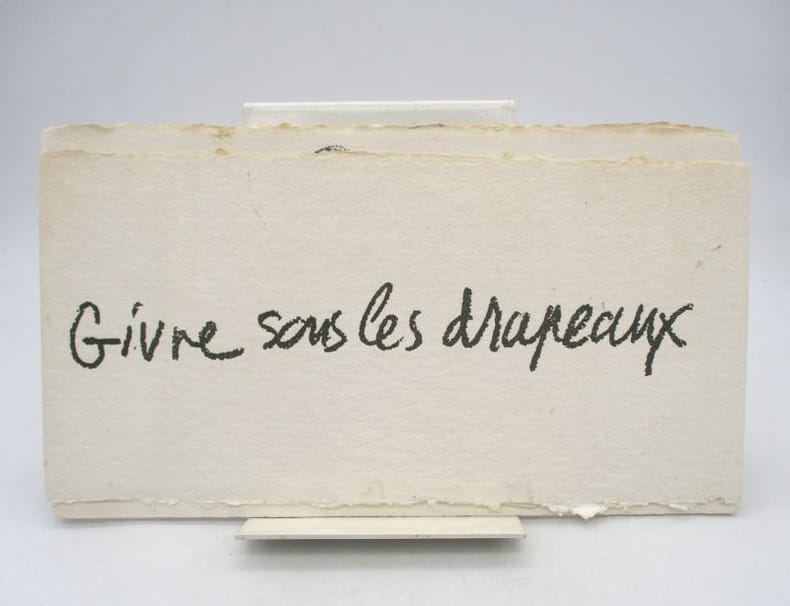 Givre sous les drapeaux